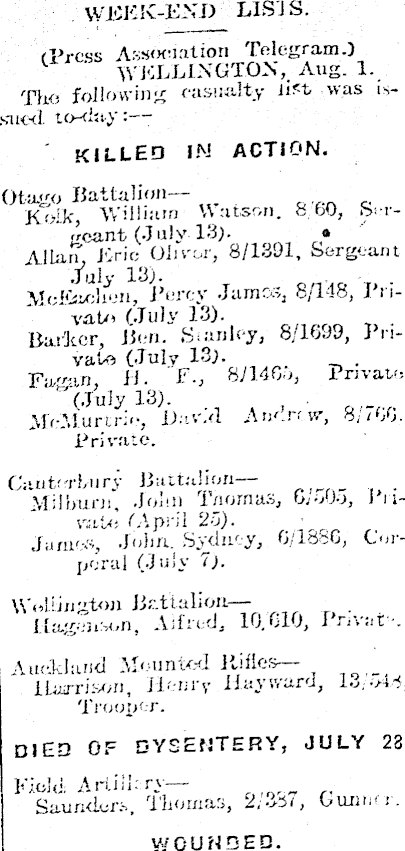 WEEK-END LISTS.
(Press Association Telegram.)
WELLINGTON, Aug. 1.
The following casualty list was is-
sued to-day:—
KILLED IN ACTION.
Otago Battalion—
Kolk, William Watson, 8/60, Ser-
geant (July 13).
Allan, Eric Oliver, 8/1391, Sergeant
July 13).
McEachen, Percy James, 8/148, Pri-
vate (July 13).
Barker, Ben. Stanley, 8/1699, Pri-
vate (July 13).
Fagan, H. F., 8/1465, Private
(July 13).
McMurtrie, David Andrew, 8/766,
Private.
Canterbury Battalion—
Milburn, John Thomas, 6/505, Pri-
vate (April 25).
James, John Sydney, 6/1886, Cor-
poral (July 7).
Wellington Battalion—
Hagenson, Alfred, 10,610, Private.
Auckland Mounted Rifles—
Harrison, Henry Hayward, 13/548
Trooper.
DIED OF DYSENTERY, JULY 28
Field Artillery—
Saunders, Thomas, 2/387, Gunner.
WOUNDED.